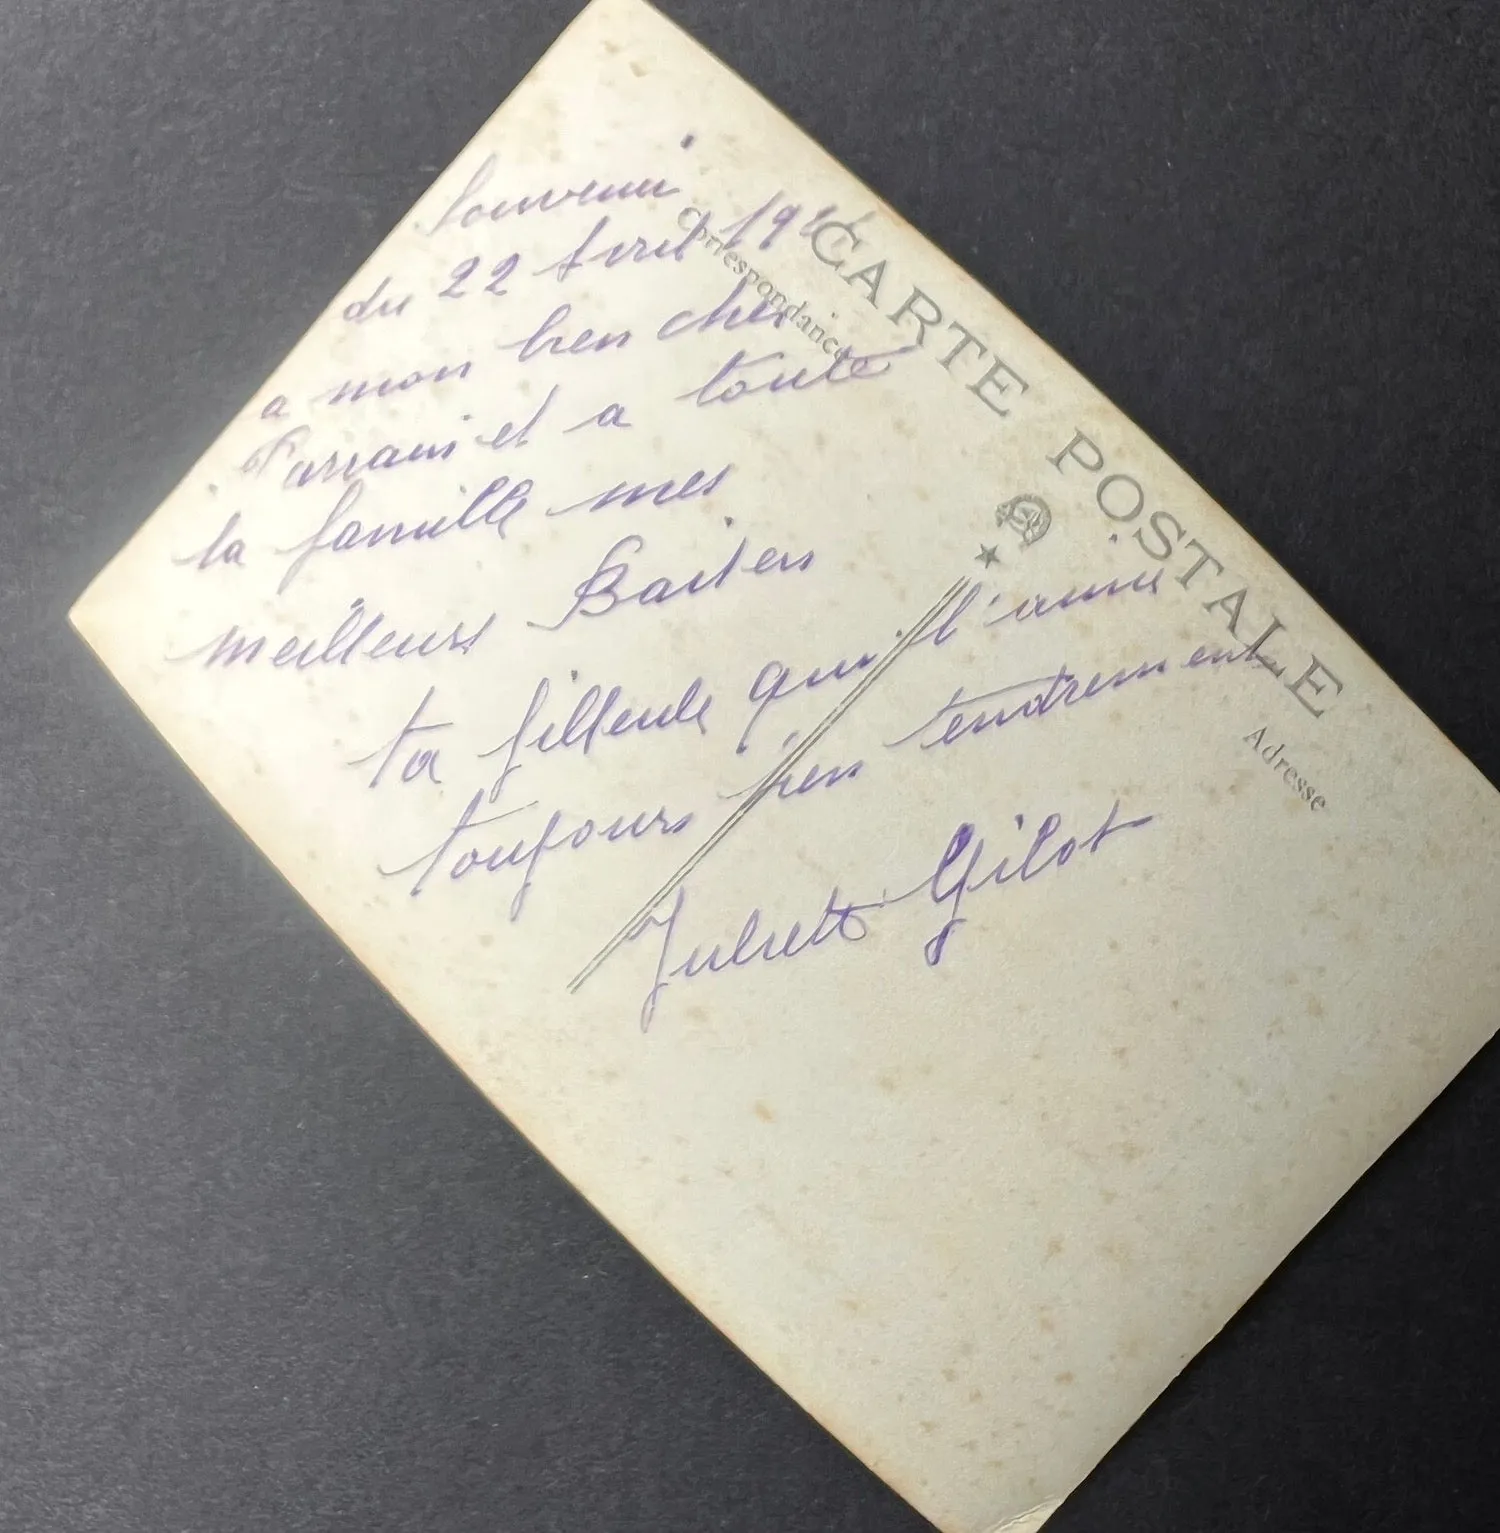 CARTE POSTALE
Correspondance
Adresse
Souvenir
du 22 Avril
a mon bien cher
Parrain et a toute
la famille mes
meilleurs Baisers
ta filleule qui l'aime
toujours bien tendrement
Juliette Gilot